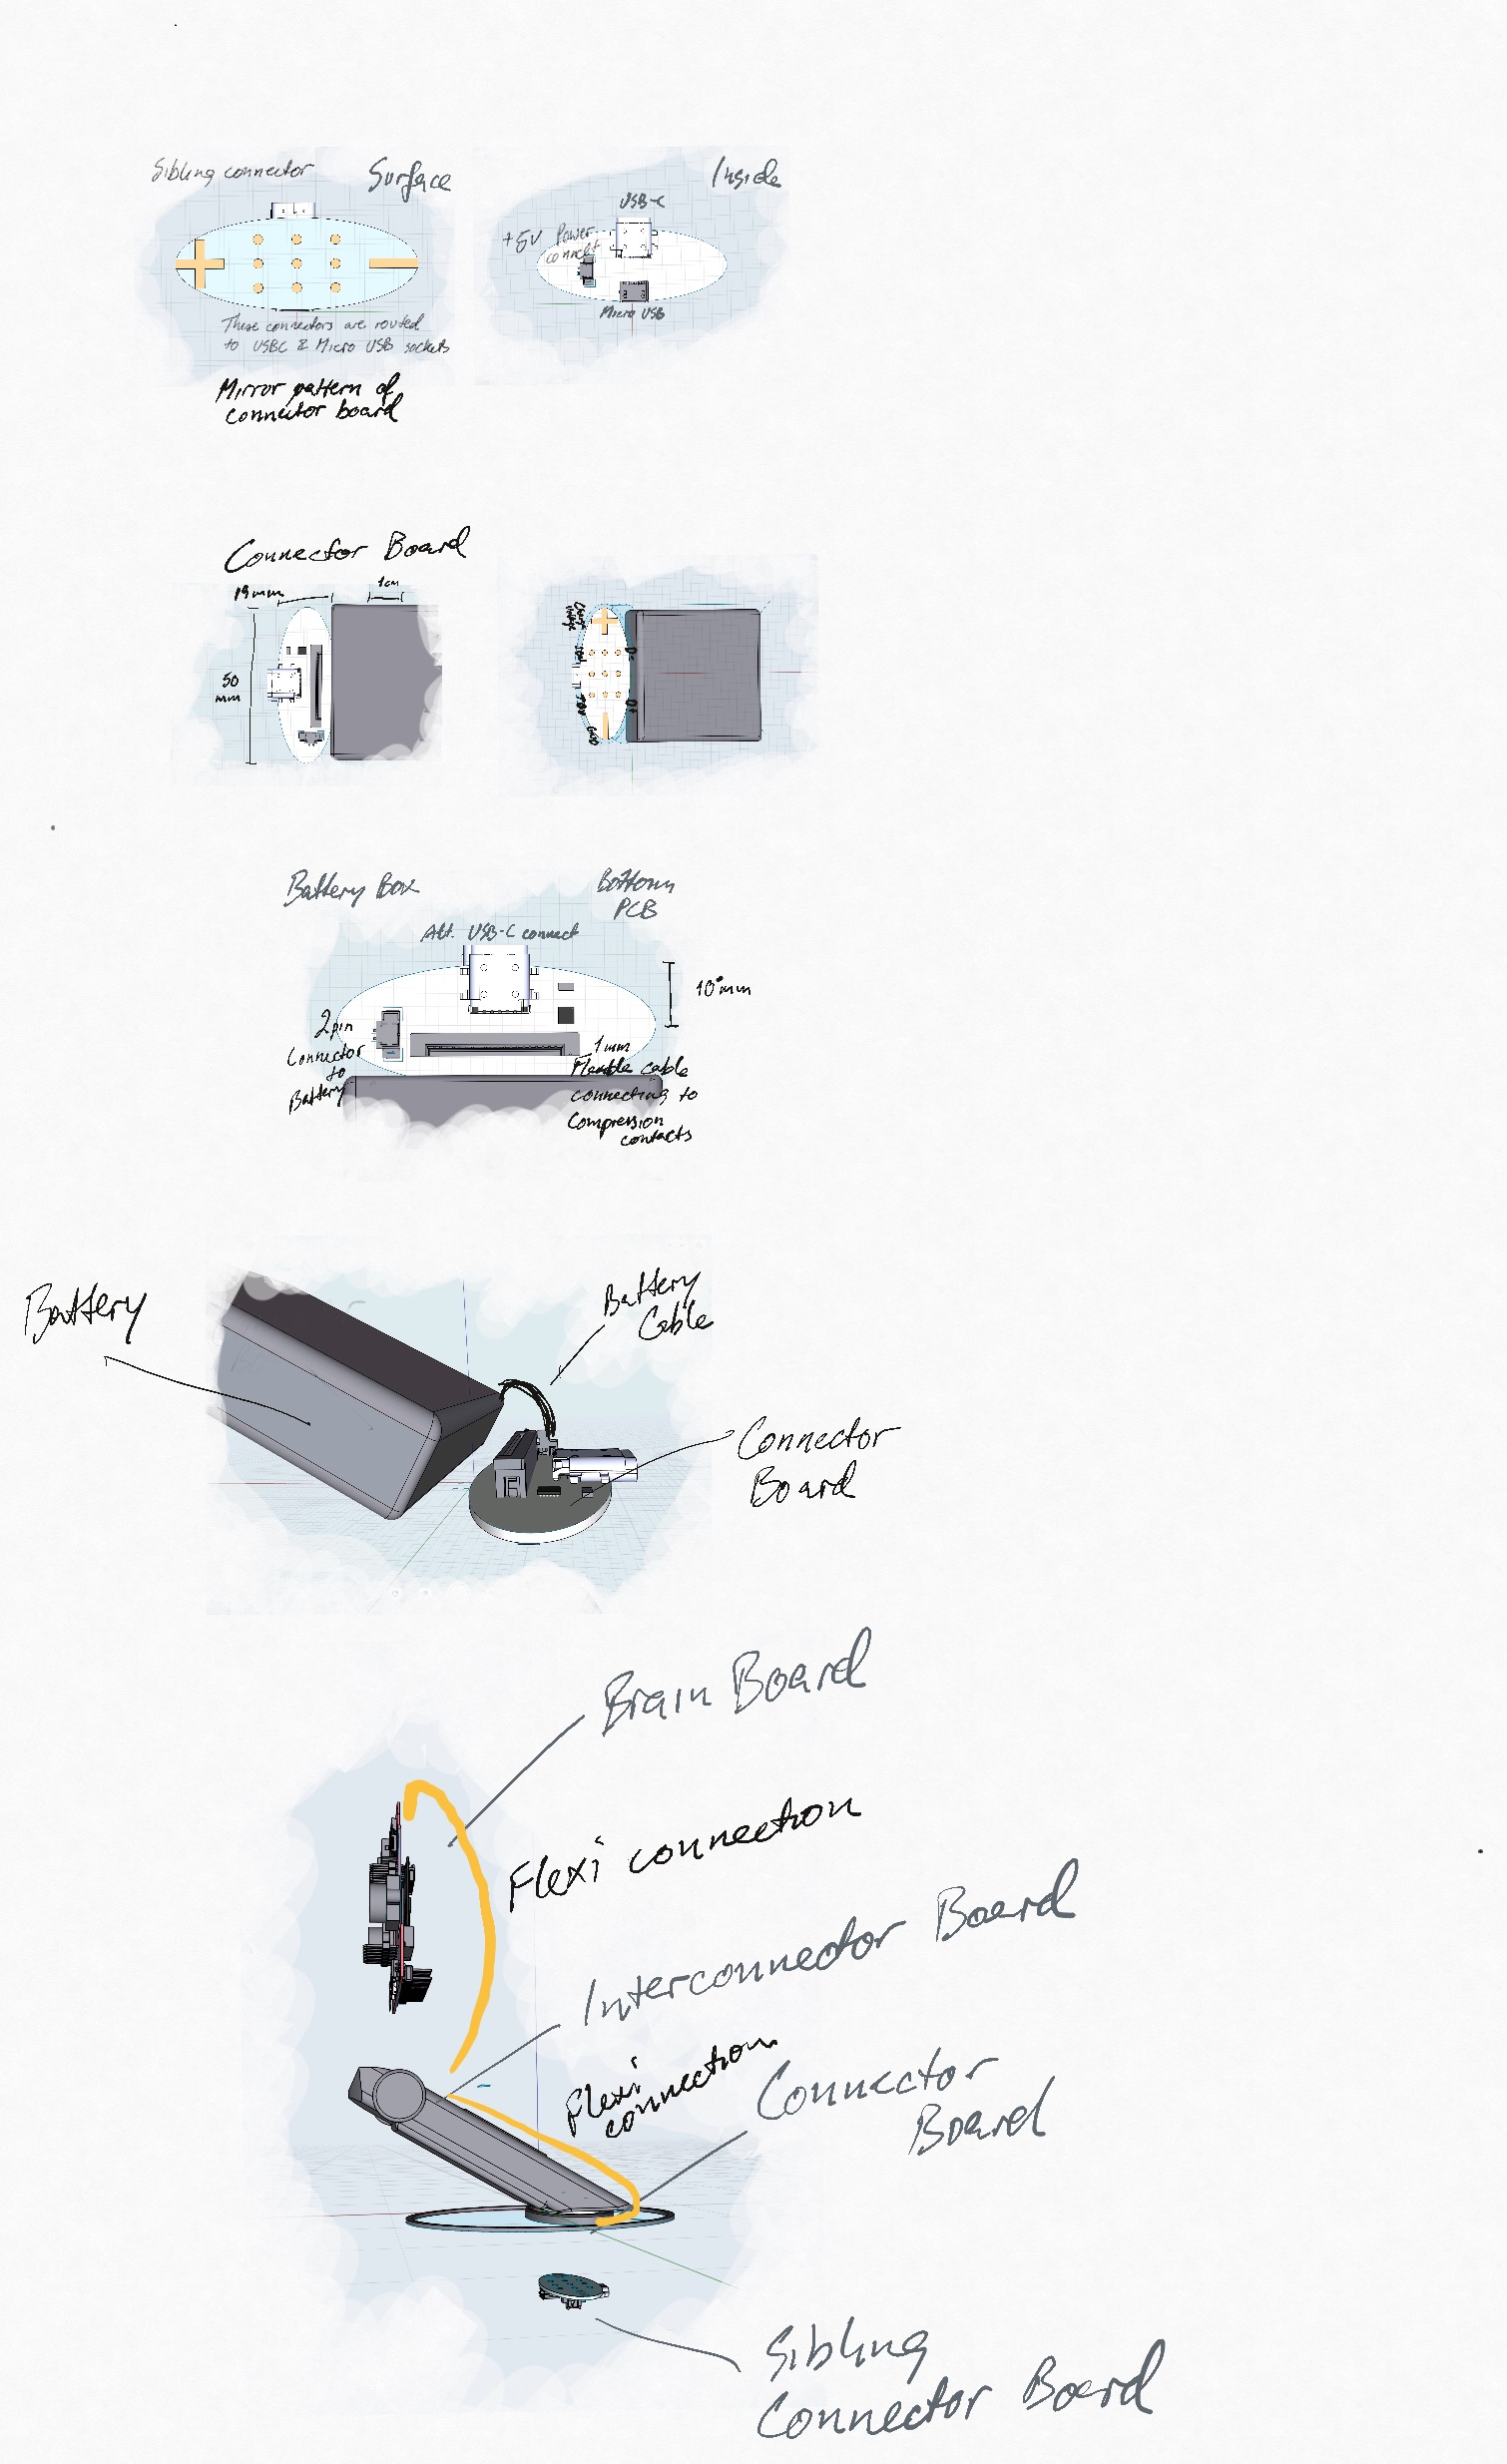 Sibling connector
Surface
Inside
USB-C
+5V Power
connect
Micro USB
These connectors are routed
to USBC & Micro USB sockets
Mirror pattern of
connector board
Connector Board
19mm
1cm
50
mm
D-
D+
GND
Battery Box
Bottom
PCB
Alt. USB-C connect
10mm
2pin
Connector
to
Battery
1mm
Flexible cable
connecting to
Compression
contacts
Battery
Battery
Cable
Connector
Board
Brain Board
Flexi connection
Interconnector Board
Flexi
connection
Connector
Board
Sibling
Connector Board